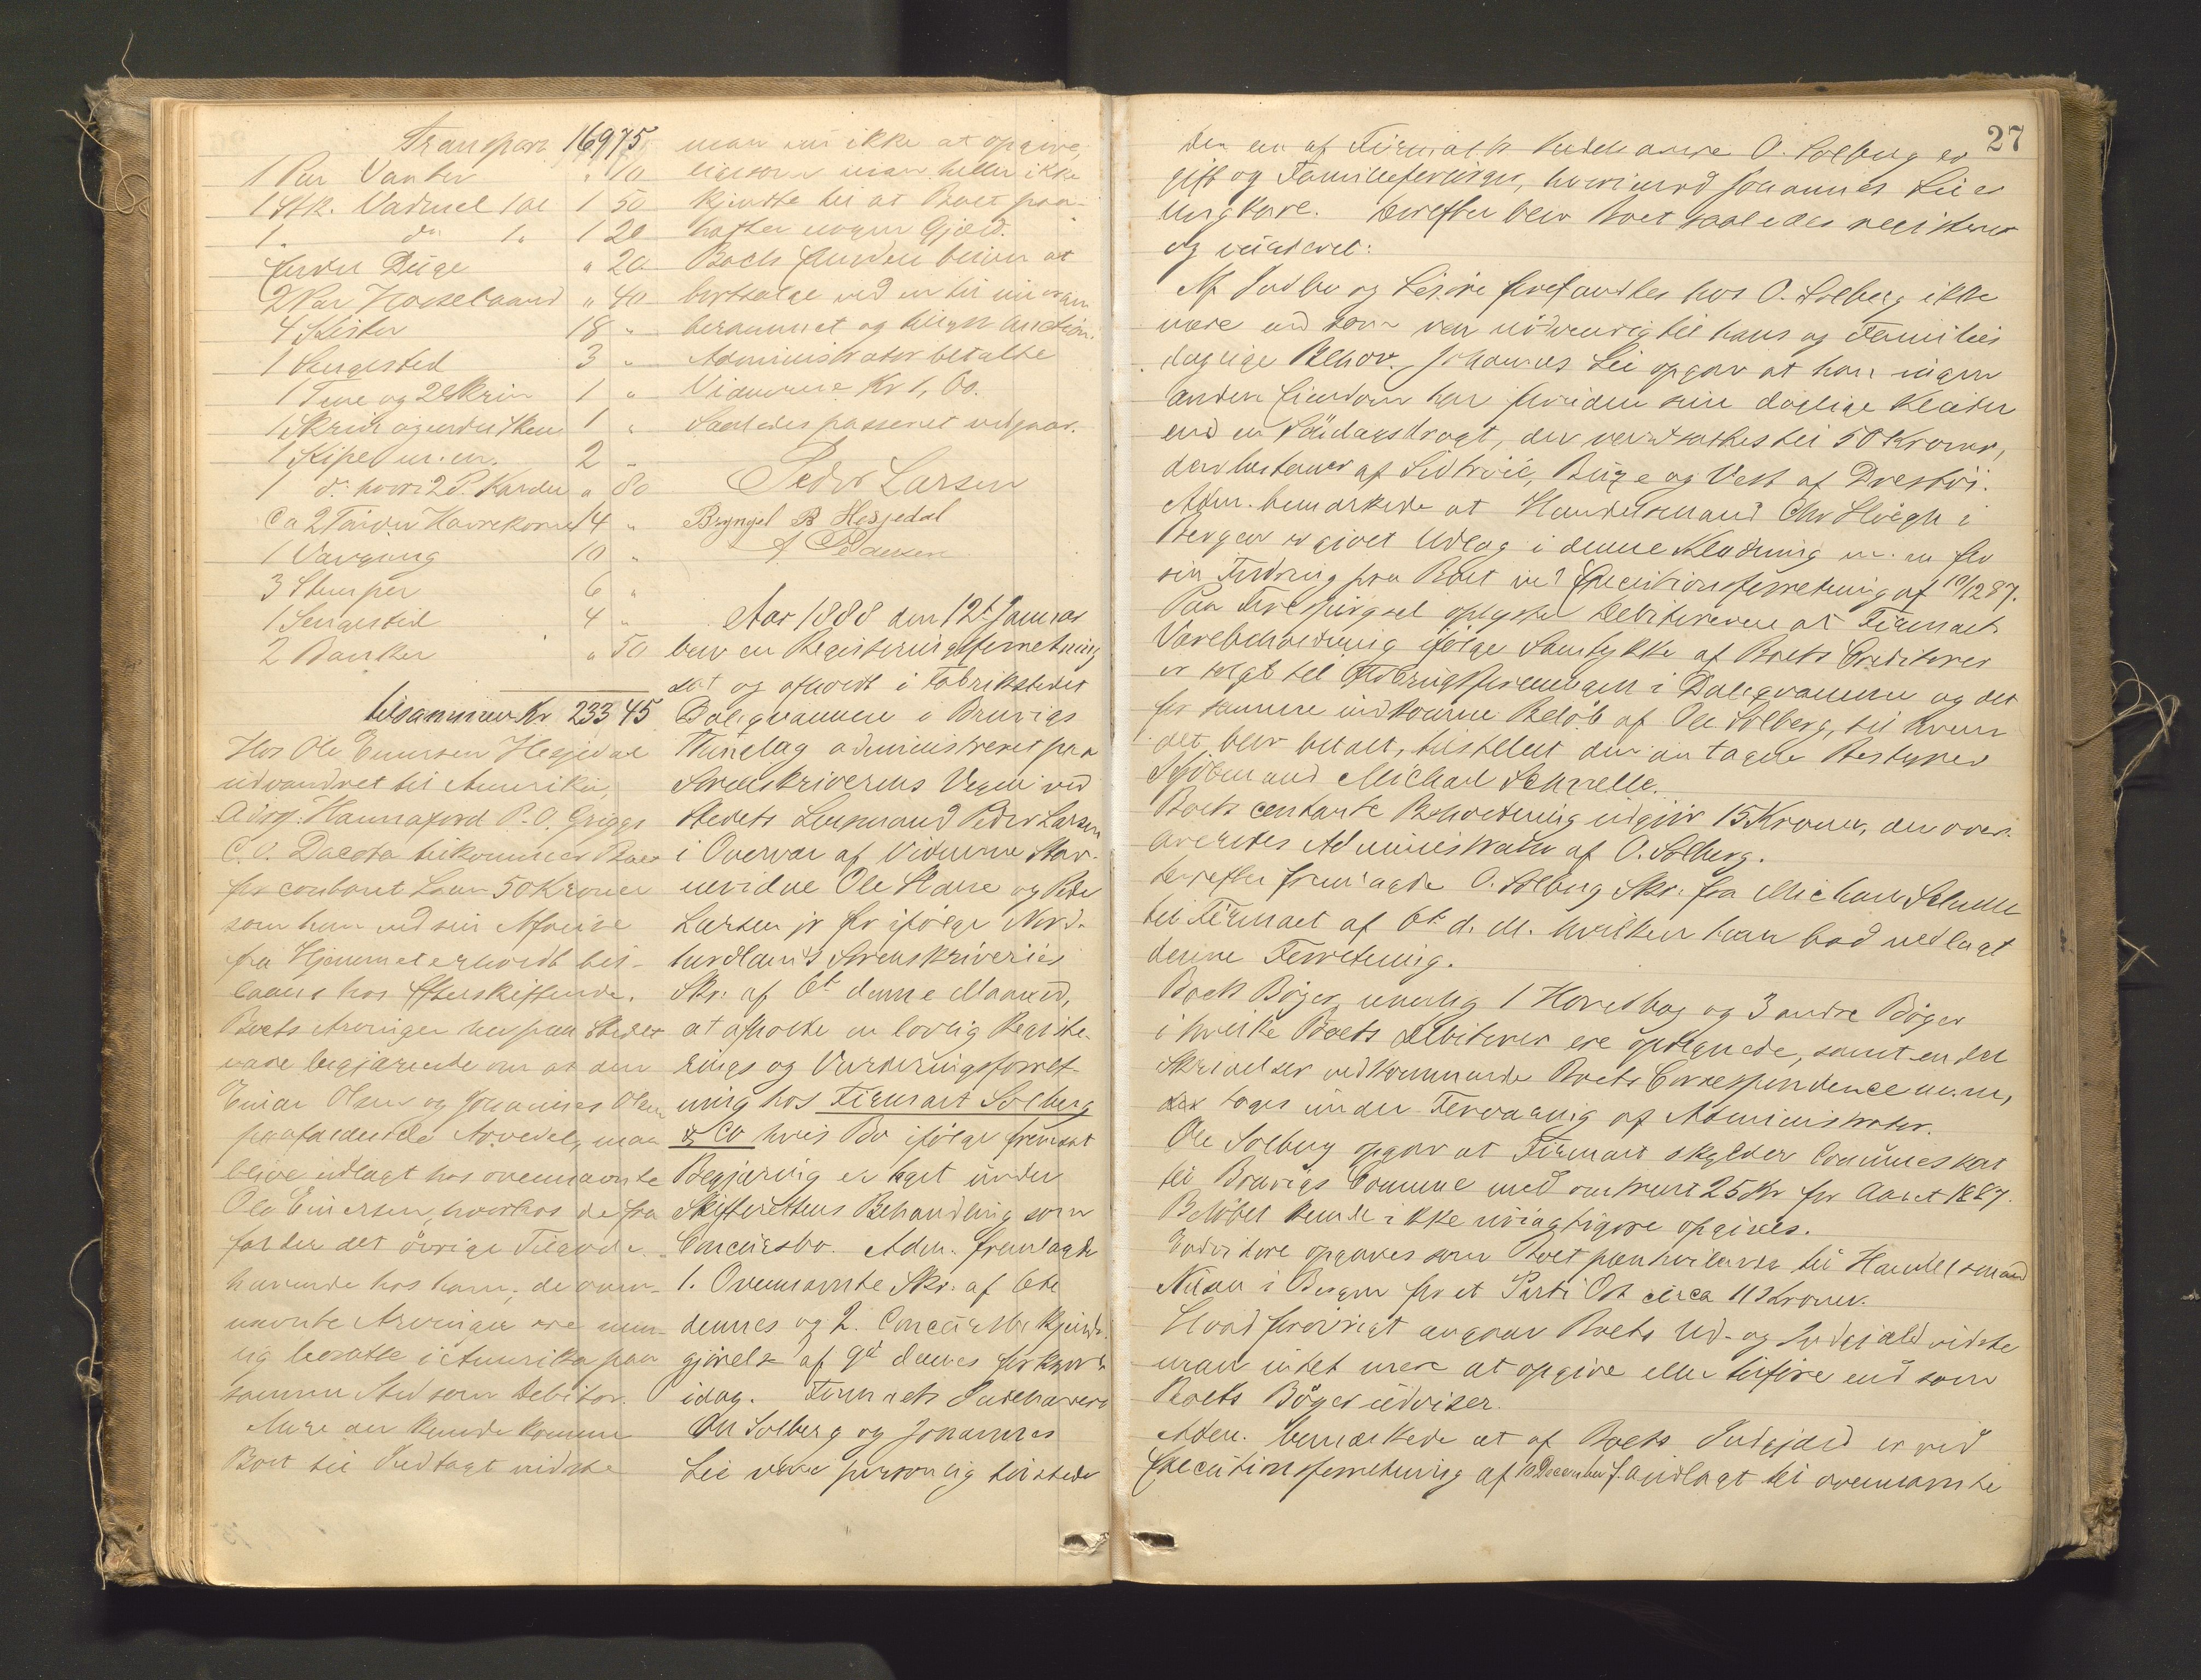 Transport 169 75
1 Par Vanter " 10
1 Stk. Vadmel 1 al 1 50
1 " do 1 " 1 20
Endel Duge " 20
2 Par Hoseband " 40
4 Kister 18 "
1 Sengested 3 "
1 Tine og 2 Skrin 1 "
1 Skrin og endel Skeer 1 "
1 Kipe m. m. 2 "
1 do hvori 2 P. Karder " 80
Ca 2 Tønder Havrekorn 14 "
1 Vævgang 10 "
3 Stamper 6 "
1 Sengested 4 "
2 Bænker " 50
tilsammen Kr 233 45
Hos Ole Einersen Hesjedal
udvandret til Amerika,
Adrs. Hannaford P.O. Griggs
C.O. Dacota tilkommer Boet
for contant Laan 50 Kroner
som han ved sin Afreise
fra Hjemmet erholdt til-
laans hos Efterskiftende.
Boets Arvinger her paa Stedet
vare begjærende om at den
Einar Olsen og Johannes Olsen
paafaldende Arvedel, maa
blive udlagt hos ovennævnte
Ole Einersen, hvorhos de fra
falder det øvrige Tilgode-
havende hos ham; de oven-
nævnte Arvinger ere nem-
lig bosatte i Amerika paa
samme Sted som Debitor.
Mere der kunde komme
Boet til Indtægt vidste
man nu ikke at opgive,
ligesom man heller ikke
kjendte til at Boet paa-
hafter nogen Gjæld.
Boets Eiendele bliver at
bortsælge ved en til imorgen
berammet og tillyst Auction.
Administrator betalte
Vidnerne Kr 1,00.
Saaledes passeret vidgaar.
Peder Larsen
Bryngel B Hesjedal
A Pedersen
Aar 1888 den 12te Januar
blev en Registreringsforretning
sat og afholdt i Fabrikstedet
Dalegvammene i Bruvigs
Thinglag administreret paa
Sorenskriverens Vegne ved
Stedets Lensmand Peder Larsen
i Overvær af Vidnerne Stev-
nevidne Ole Stavre og Peder
Larsen jr for ifølge Nord-
hordlands Sorenskriveries
Skr. af 6te denne Maaned,
at afholde en lovlig Registre-
rings og Vurderingsforret-
ning hos Firmaet Solberg
& Co hvis Bo ifølge fremsat
Begjæring er taget under
Skifterettens Behandling som
Concursbo. Adm. fremlagde
1. Ovennævnte Skr. af 6te
dennes og 2. Concursbekjendt-
gjørelse af 9de dennes forkyndt
idag. Firmaets Indehavere
Ole Solberg og Johannes
Lie vare personlig tilstede
27
Den en af Firmaets Indehavere O. Solberg er
gift og Familieforsørger, hvorimod Johannes Lie er
Ungkarl. Derefter blev Boet saaledes registreret
og vurderet:
Af Indbo og Løsøre forefandtes hos O. Solberg ikke
mere end som var nødvendig til hans og Families
daglige Behov. Johannes Lie opgav at han ingen
anden Eiendom har foruden sine daglige Klæder
end en Søndagsdragt, der værdsattes til 50 Kroner,
den bestaaer af Sidtrøie, Buxe og Vest af Dresstøi.
Adm. bemærkede at Handelsmand Chr Høegh i
Bergen er givet Udlæg i denne Klædning m. m for
sin Fordring paa Boet ved Executionsforretning af 10/12 87.
Paa Forespørgsel oplyste Debitorerne at Firmaets
Varebeholdning ifølge Samtykke af Boets Creditorer
er solgt til Forbrugsforeningen i Dalegvammene og det
for samme indkomne Beløb af Ole Solberg, til hvem
det blev betalt, tilstillet den antagne Bestyrer
Kjøbmand Michael Schnelle.
Boets contante Beholdning udgjør 15 Kroner, der over-
leveredes Administrator af O. Solberg.
Derefter fremlagde O. Solberg Skr. fra Michael Schnelle
til Firmaet af 6te d. M. hvilken han bad vedlagt
denne Forretning.
Boets Bøger, nemlig 1 Hovedbog og 3 andre Bøger
i hvilke Boets Debitorer ere optegnede, samt en del
Skrivelser vedkommende Boets Correspondence m.m,
toges under Forvaring af Administrator.
Ole Solberg opgav at Firmaet skylder Communeskat
til Bruvigs Commune med omtrent 25 Kr for Aaret 1887.
Beløbet kunde ikke nøiagtigere opgives.
Endvidere opgaves som Boet paahvilende til Handelsmand
Nilsen i Bergen for et Parti Ost circa 11 Kroner.
Hvad forøvrigt angaar Boets Ud- og Indgjæld vidste
man intet mere at opgive eller tilføie end som
Boets Bøger udviser.
Adm. bemærkede at af Boets Indgjæld er ved
Executionsforretning af 10 December f. A udlagt til ovennævnte